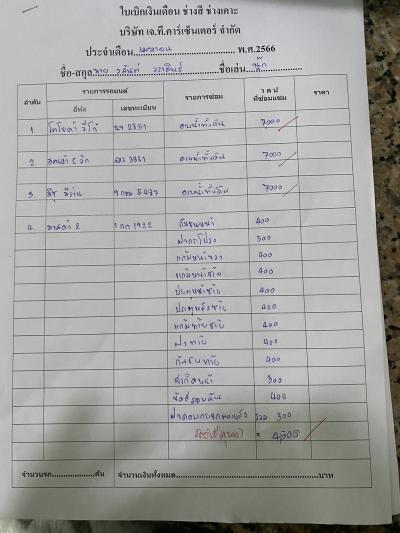 ใบเบิกเงินเดือน ช่างสี ช่างเคาะ
บริษัท เจ.ที.คาร์เซ็นเตอร์ จำกัด
ประจำเดือน เมษายน พ.ศ.2566
ชื่อ-สกุล นาย ชื่อเล่น นุ๊ก
ลำดับ รายการรถยนต์ รายการซ่อม ว ด ป ที่ซ่อมแซม ราคา
ยี่ห้อ เลขทะเบียน
1 โตโยต้า วีโก้ 2351 อาบน้ำทั้งคัน 7000
2 3881 อาบน้ำทั้งคัน 7000
3 อีซูซุ 5437 อาบน้ำทั้งคัน 7000
4 มาสด้า 2 1 กก 1922 กันชนหน้า 400
ฝากระโปรง 500
แก้มหน้าขวา 400
แก้มหน้าซ้าย 400
ประตูหน้าซ้าย 400
ประตูหลังซ้าย 400
แก้มท้ายซ้าย 400
ฝาท้าย 400
กันชนท้าย 400
300
ขัดสีรอบคัน 400
300
= 4500
จำนวนรถ คัน จำนวนเงินทั้งหมด บาท